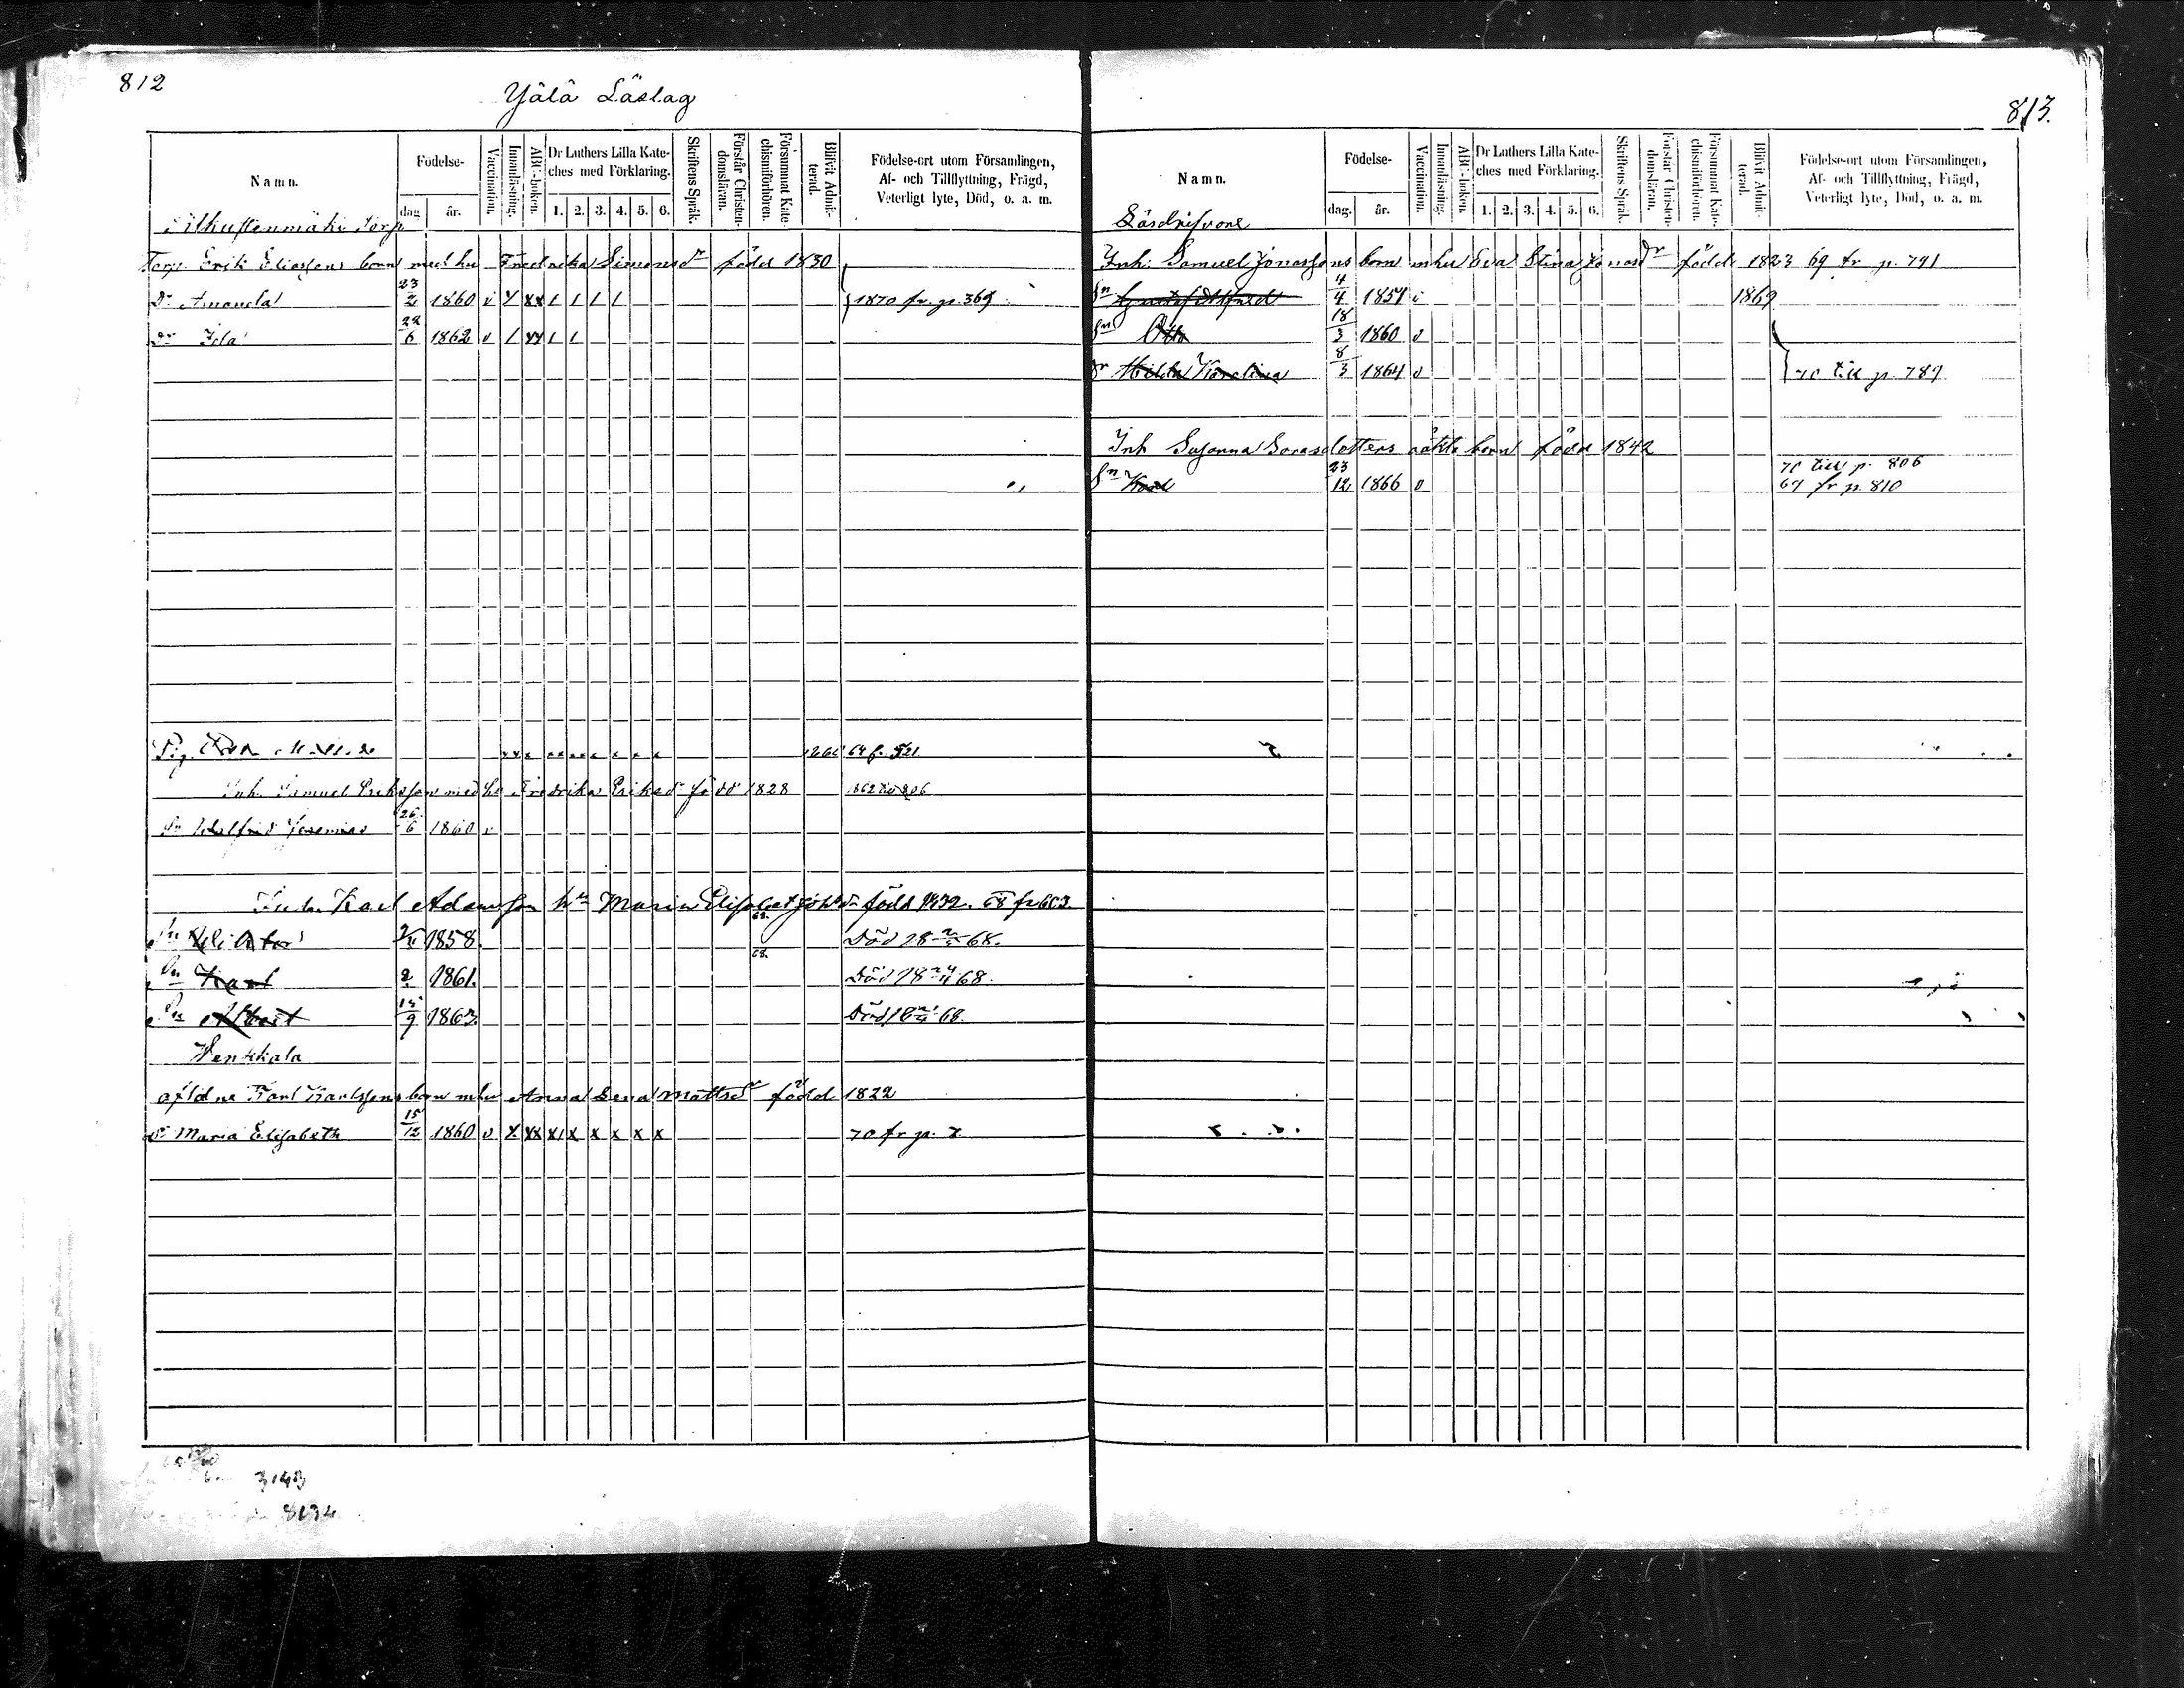 812
Yälä Läslag
Namn.
Födelse-
dag
år.
Vaccination.
Innanläsning.
ABC-boken.
Dr Luthers Lilla Kate-
ches med Förklaring.
1. 2. 3. 4. 5. 6.
Skriftens Språk.
Förstår Christen-
domsläran.
Försummat Kate-
chismiförhören.
Blifvit Admit-
terad.
Födelse-ort utom Församlingen,
Af- och Tillflyttning, Frägd,
Veterligt lyte, Död, o. a. m.
Torp
Torp. Erik Eliassons barn med hu Fredrika Simonsdr född 1830
Dr Amanda 23/2 1860 v 1870 fr. p. 369
Dr Ida 22/6 1862 v
Pig. 64 f. 521
Inh. Samuel Eriksson med hu Fredrika Eriksdr född 1828 1862
Sn Walfrid Jeremias 26/6 1860 v
Inh. Karl Adamsson hu Maria Elisabet född 1832. 68 fr 603.
69.
Sn 1858 Död 68.
68.
Sn Karl 2 1861. Död 68.
Sn Albert 15/9 1863. Död 68.
Wentkala
aflidne Karl Karlssons barn mhu Anna Lena Mattsdr född 1822
Dr Maria Elisabeth 15/12 1860 v x xx x x x x x x 70 fr p. 7.
3143
8134
813.
Namn.
Födelse-
dag.
år.
Vaccination.
Innanläsning.
ABC-boken.
Dr Luthers Lilla Kate-
ches med Förklaring.
1. 2. 3. 4. 5. 6.
Skriftens Språk.
Förstår Christen-
domsläran.
Försummat Kate-
chismiförhören.
Blifvit Admit-
terad.
Födelse-ort utom Församlingen,
Af- och Tillflyttning, Frägd,
Veterligt lyte, Död, o. a. m.
Inh: Samuel Jonassons barn mhu Eva Stina Jonasdr född 1823 69 fr p. 791
Sn Gustaf Alfred 4/4 1851 v 1869
Sn Otto 18/3 1860 v
Dr Hilda Karolina 8/3 1864 v 70 till p. 789
Inh Susanna oäkta barn född 1842
70 till p. 806
Sn Karl 23/12 1866 v 69 fr p. 810